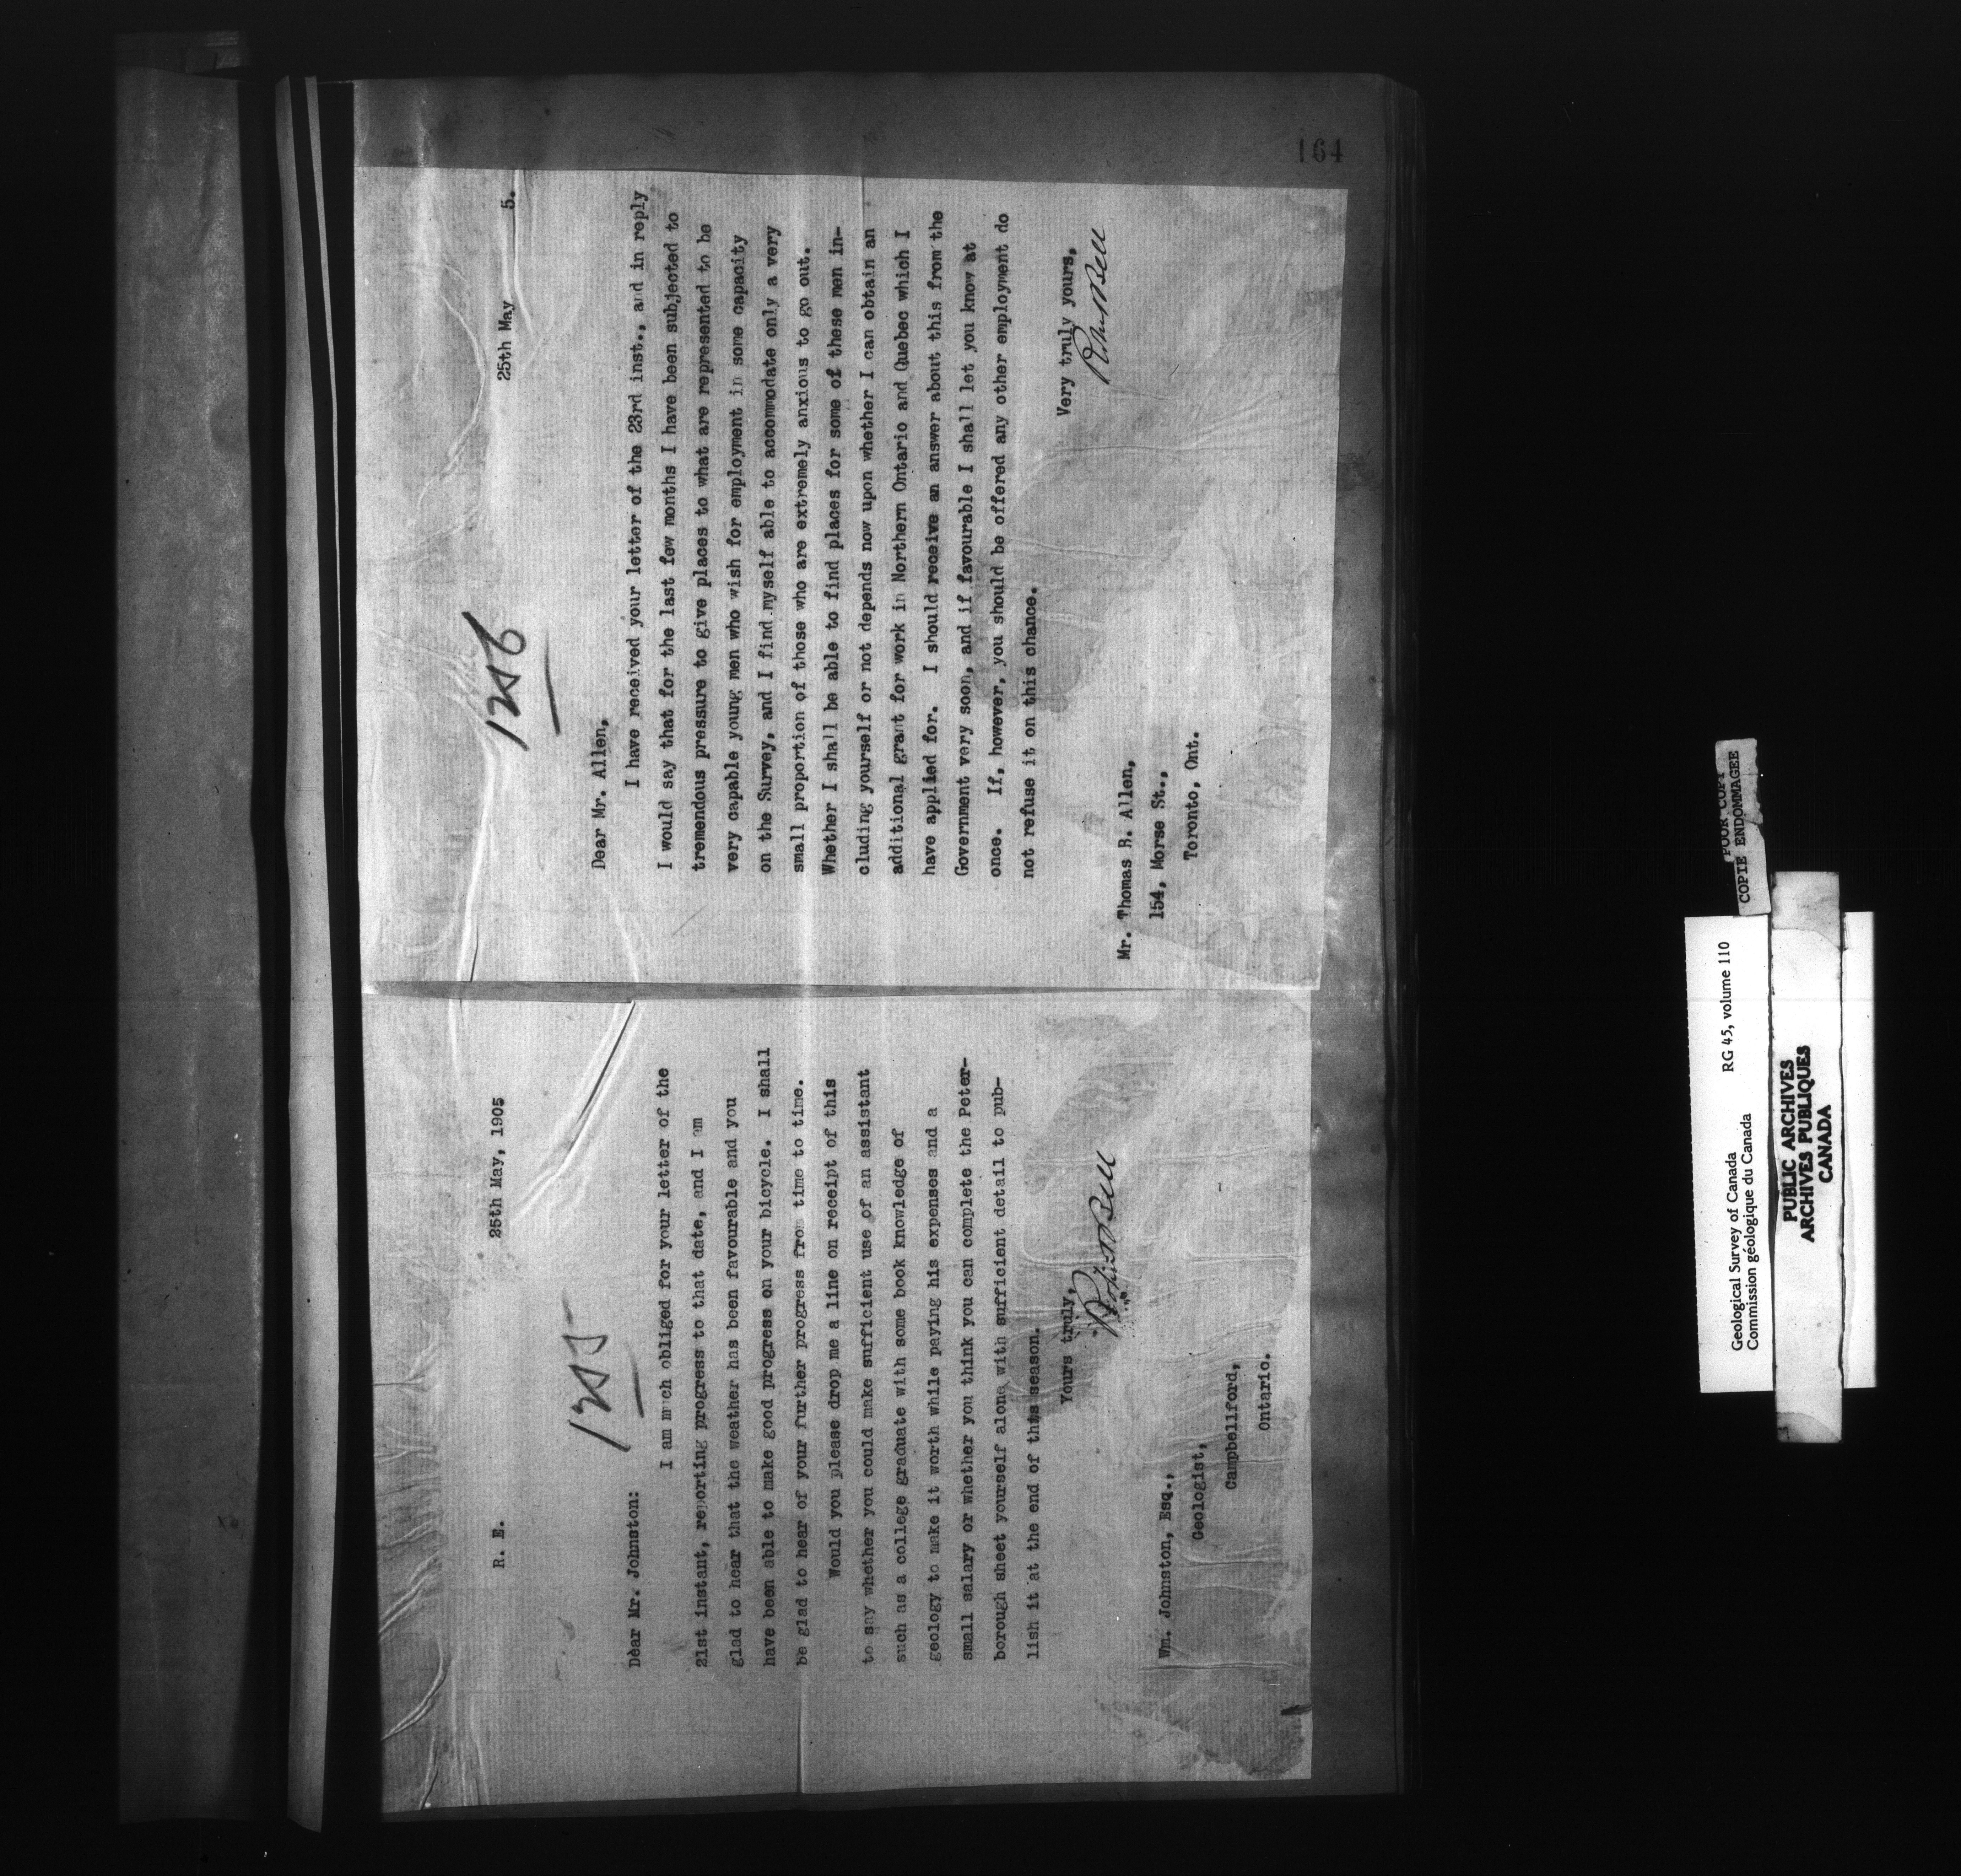 1255
R. E.
25th May, 1905
Dear Mr. Johnston:
I am much obliged for your letter of the
21st instant, reporting progress to that date, and I am
glad to hear that the weather has been favourable and you
have been able to make good progress on your bicycle. I shall
be glad to hear of your further progress from time to time.
Would you please drop me a line on receipt of this
to say whether you could make sufficient use of an assistant
such as a college graduate with some book knowledge of
geology to make it worth while paying his expenses and a
small salary or whether you think you can complete the Peter-
borough sheet yourself alone with sufficient detail to pub-
lish it at the end of this season.
Yours truly,
Robert Bell
Wm. Johnston, Esq.,
Geologist,
Campbellford,
Ontario.
1256
25th May 5.
Dear Mr. Allen,
I have received your letter of the 23rd inst., and in reply
I would say that for the last few months I have been subjected to
tremendous pressure to give places to what are represented to be
very capable young men who wish for employment in some capacity
on the Survey, and I find myself able to accommodate only a very
small proportion of those who are extremely anxious to go out.
Whether I shall be able to find places for some of these men in-
cluding yourself or not depends now upon whether I can obtain an
additional grant for work in Northern Ontario and Quebec which I
have applied for. I should receive an answer about this from the
Government very soon, and if favourable I shall let you know at
once. If, however, you should be offered any other employment do
not refuse it on this chance.
Very truly yours,
Robert Bell
Mr. Thomas R. Allen,
154, Morse St.,
Toronto, Ont.
164
Geological Survey of Canada RG 45, volume 110
Commission géologique du Canada
POOR COPY
COPIE ENDOMMAGEE
PUBLIC ARCHIVES
ARCHIVES PUBLIQUES
CANADA